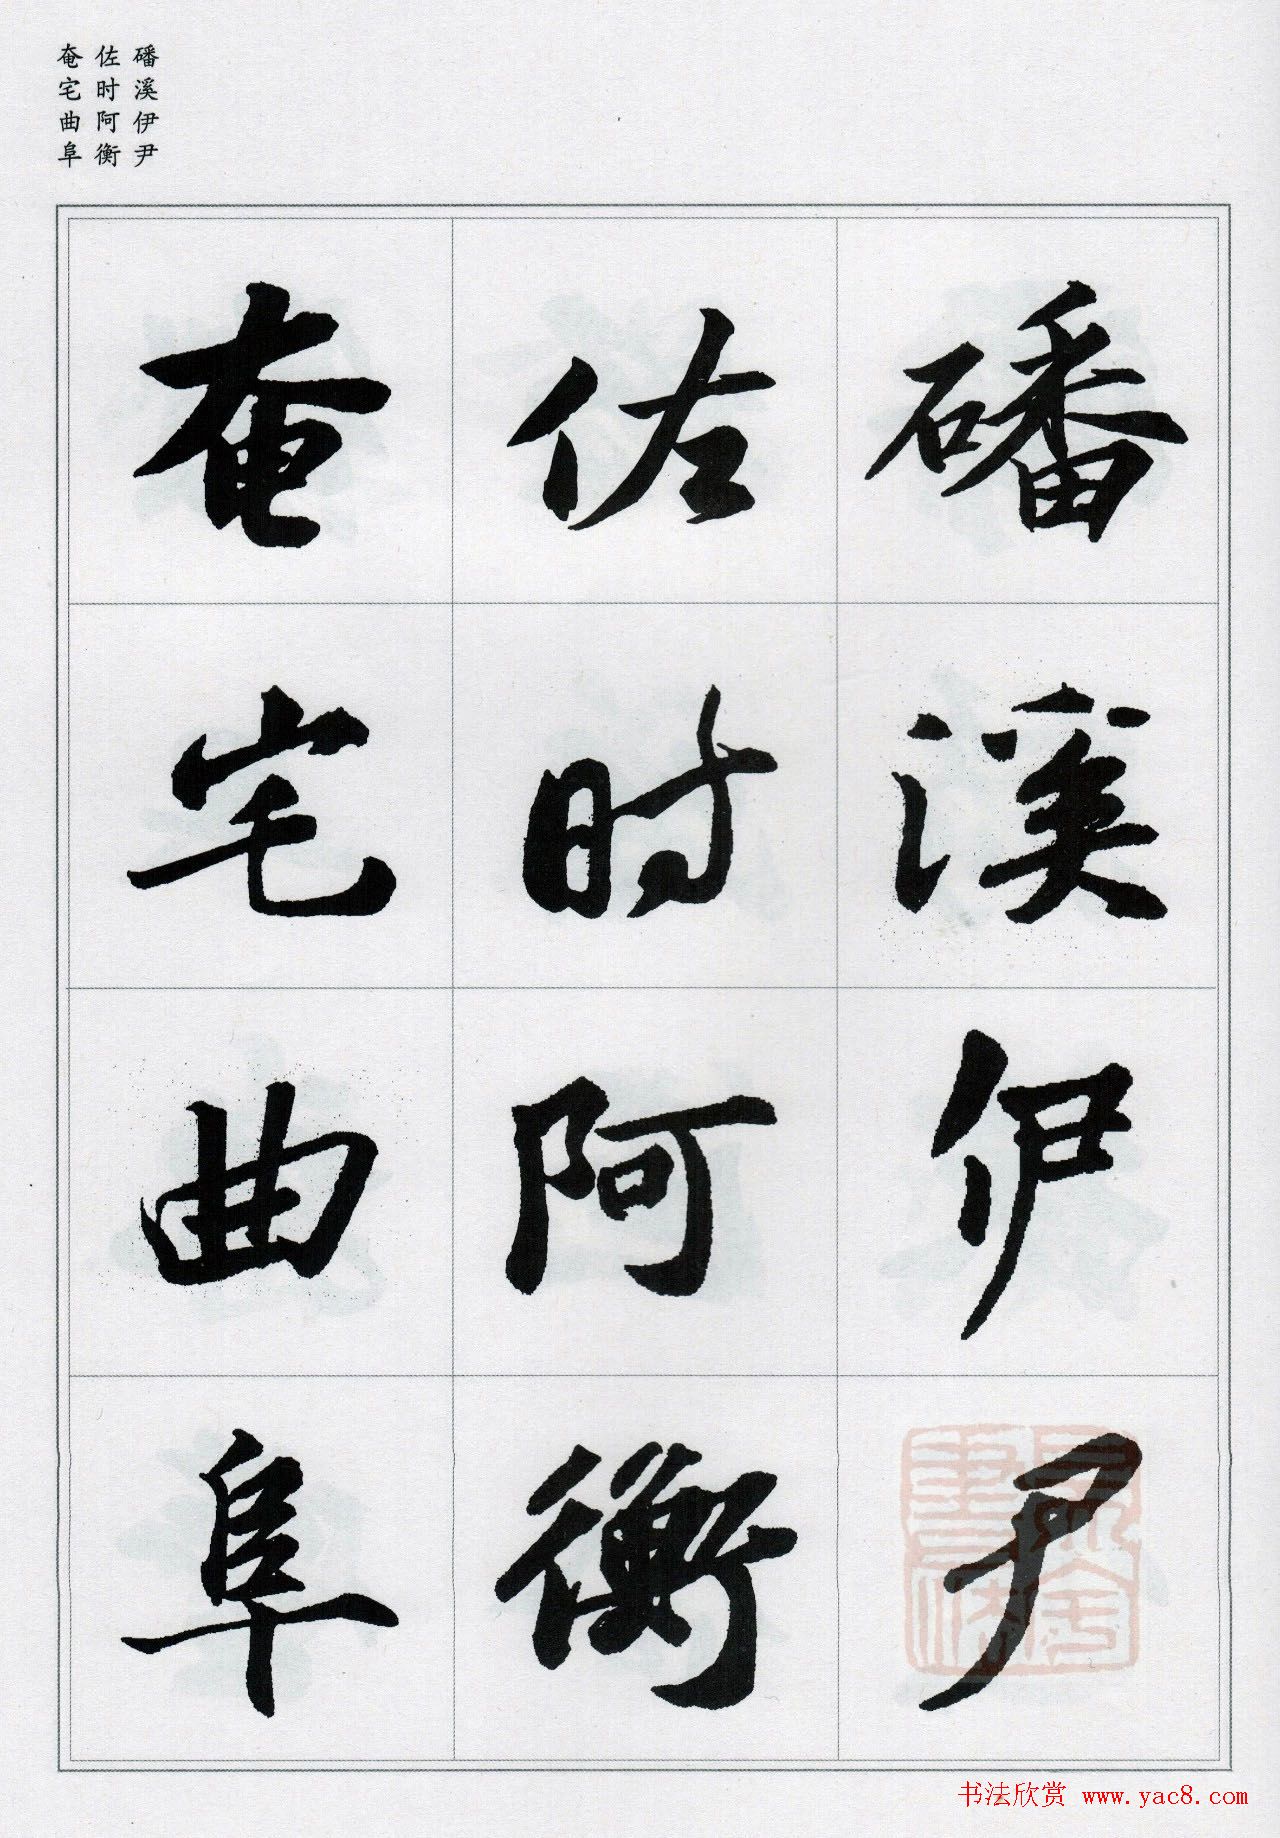 磻溪伊尹
佐时阿衡
奄宅曲阜
磻溪伊尹
佐时阿衡
奄宅曲阜
书法欣赏 www.yac8.com